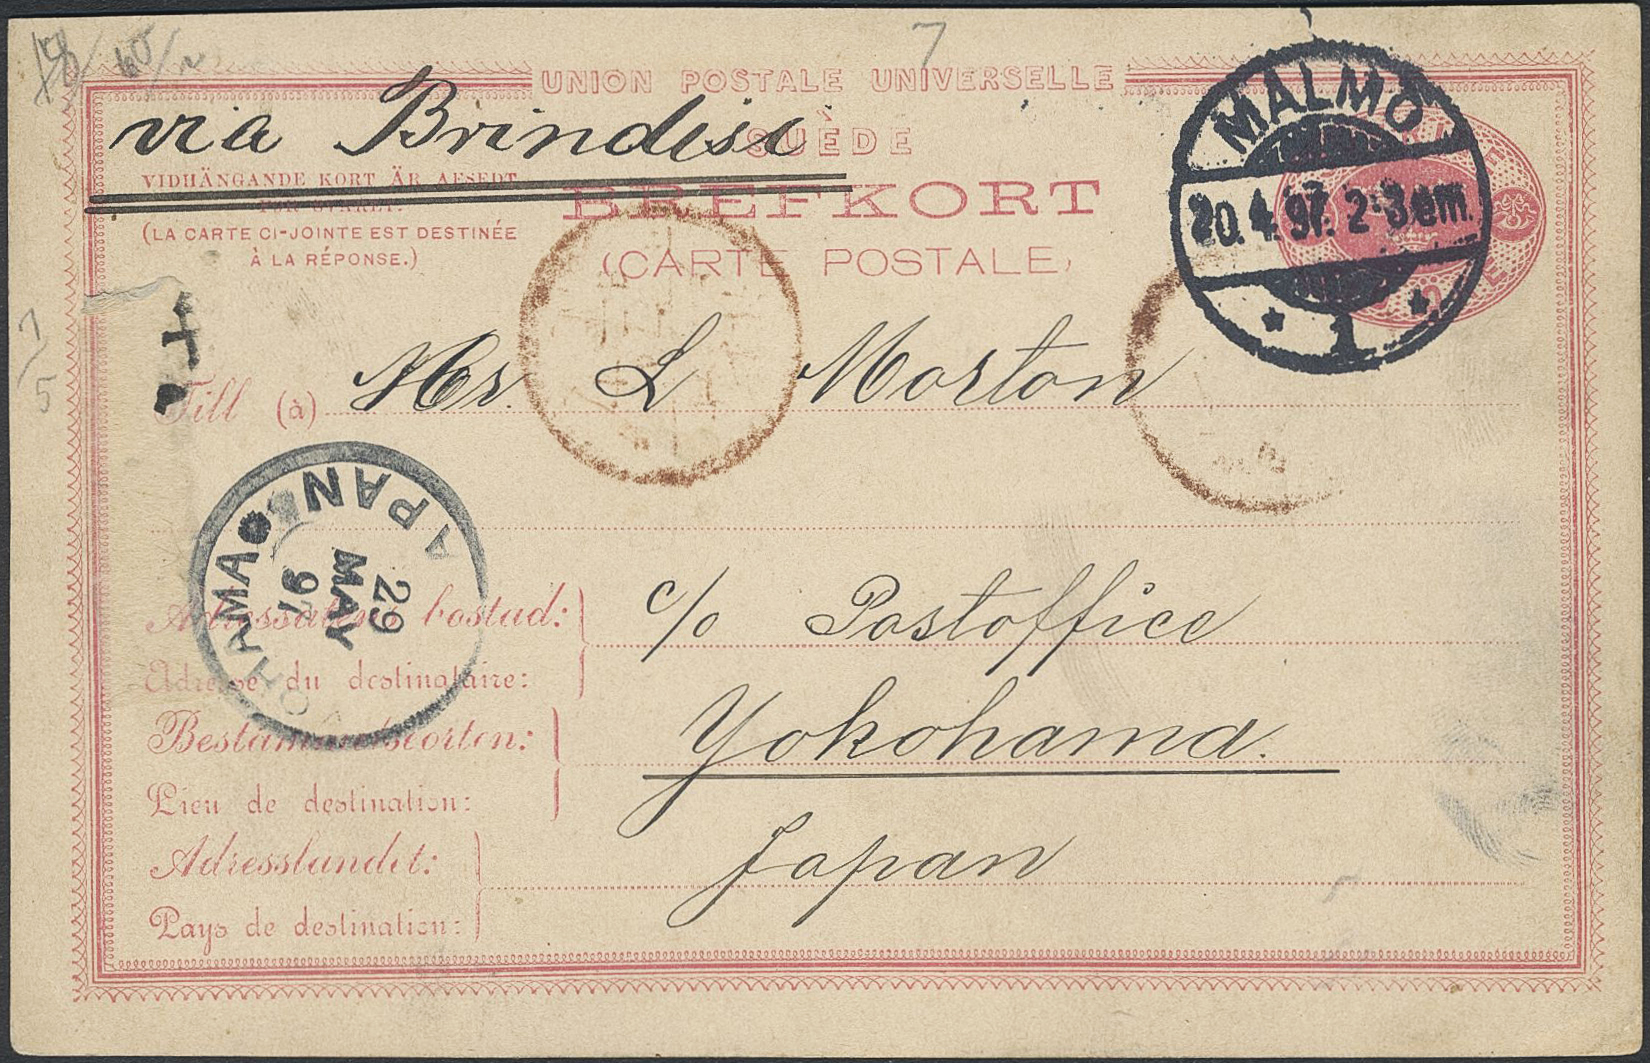 7
UNION POSTALE UNIVERSELLE
via Brindisi
SUÈDE
VIDHÄNGANDE KORT ÄR AFSEDT
FÖR SVARET.
BREFKORT
(LA CARTE CI-JOINTE EST DESTINÉE
À LA RÉPONSE.)
(CARTE POSTALE)
MALMÖ
20. 4. 97. 2-3 em.
1
7/5
Till (à) Mr. L Morton
YOKOHAMA JAPAN
29
MAY
97
Adressatens bostad: c/o Postoffice
Adresse du destinataire:
Bestämmelseorten: Yokohama.
Lieu de destination:
Adresslandet: Japan
Pays de destination: